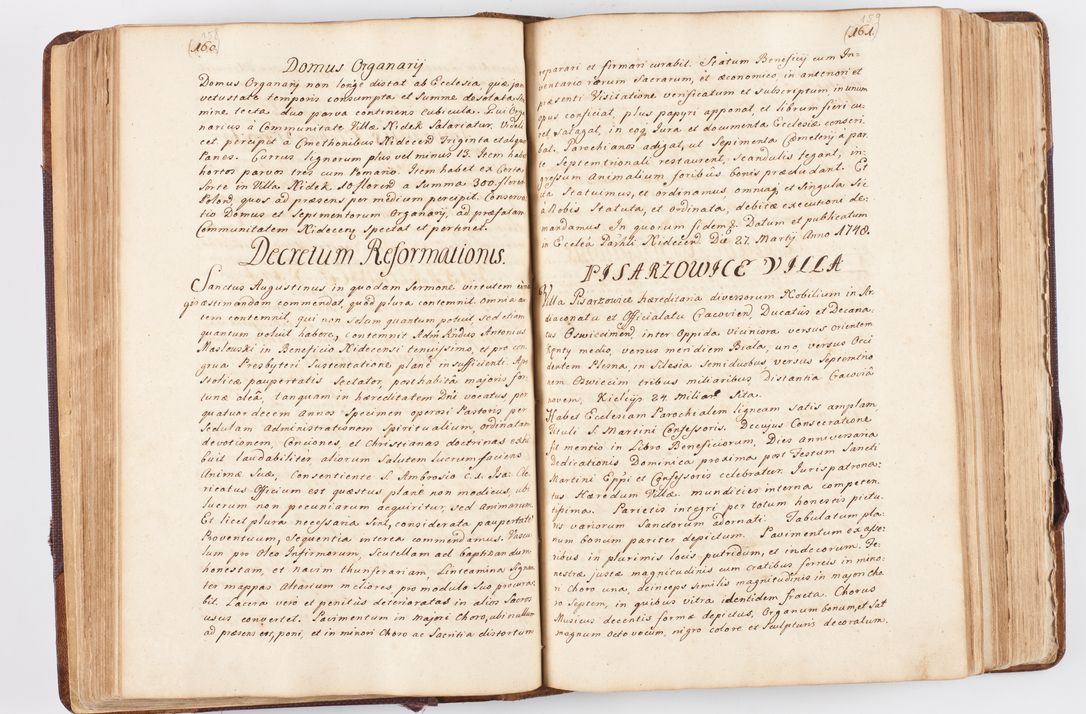 158
(160.
Domus Organarij
Domus Organarij non longe distat ab Ecclesia, quæ jam
vetustate temporis consumpta et Summe desolata,
mine tecta duo parva continens Cubicula. Qui Orga
narius à Communitate Villæ Nidek Salariatur. Videli
cet percipit à Cmethonibus Nidecen triginta et aliquo
Panes. Currus lignorum plus vel minus 13. Item habe
hortos parvos tres cum Pomario. Item habet ex Certa
Sorte in Villa Nidek 10 floren à Summa 300. floren
Polon, quos ad præsens per medium percipit. Conserva
tio Domus et Sepimentorum Organarij, ad præfatam
Communitatem Nidecen Spectat et pertinet.
Decretum Reformationis.
Sanctus Augustinus in quodam Sermone virtutem
æstimandam commendat, quod plura contemnit. Omnia au
tem contemnit, qui non Solum quantum potuit, sed etiam
quantum voluit habere, contemnit Adm Rndus Antonius
Maslewski in Beneficio Nidecensi tenuissimo, et pro con
grua Presbyteri Sustentatione plane insufficienti. Apo
stolicæ paupertatis Sectator, posthabitâ majoris for
tunæ oleâ, tanquam in hæreditatem Dni vocatus, per
quatuordecem annos Specimen operosi Pastoris per
Sedulam administrationem Spiritualium, ordinatam
devotionem, Conciones, et Christianas doctrinas exhi
buit laudabiliter, aliorum Salutem lucrum faciens
Animæ Suæ, Consentiente S. Ambrosio c. 1. Isa: Cle
ricatus Officium est quæstus planè non modicus, ubi
lucrum non pecuniarum acquiritur, sed Animarum.
Et licet plura necessaria Sint, considerata paupertate
Proventuum, Sequentia interea commendamus. Vascu
lum pro Oleo Infirmorum, Scutellam ad baptizandum
honestam, et navim thuriferariam, Linteamina Signan
ter mappas Altarium meliores, pro modulo Suo procura
bit. Lacera vero et penitus deterioratas in alios Sacros
usus convertet. Pavimentum in majori Choro, ubi nullum
ad præsens est, poni, et in minori Choro ac Sacristia distortum
159
(161.
reparari et firmari curabit. Statum Beneficij cum In-
ventario rerum Sacrarum, et œconomico, in anteriori et
præsenti Visitatione verificatum et subscriptum, in unum
opus conficiat, plus papyri apponat, et librum fieri cu-
ret, satagat, in eoq Jura et documenta Ecclesiæ conscri
bat. Parochianos adigat, ut Sepimenta Cæmeterij a par
te Septemtrionali restaurent, Scandulis tegant, in-
gressum Animalium foribus bonis præcludant. Et
ita Statuimus, et ordinamus, omniaq et Singula Sic
à Nobis Statuta, et ordinata, debitæ executioni de-
mandamus. In quorum fidem &. Datum et publicatum
in Ecclesia Parhli Nidecen Die 27. Martij Anno 1748.
PISARZOWICE VILLA
Villa Pisarzowice hæreditaria diversorum Nobilium in Ar
diaconatu et Officialatu Cracovien, Ducatus et Decana-
tus Oswiecimen, inter Oppida viciniora versus orientem
Kenty medio, versus meridiem Biala, uno versus Occi
dentem Plesna, in Silesia Semiduobus versus Septemtrio
nem Oswiecim tribus miliaribus Distantia Cracoviâ
novem, Kielcijs 24. Miliar Sita.
Habet Ecclesiam Parochialem ligneam satis amplam,
Tituli S. Martini Confessoris. De cujus Consecratione
fit mentio in Libro Beneficiorum, Dies anniversaria
Dedicationis Dominica proxima post Festum Sancti
Martini Eppi et Confessoris celebratur. Juris patrona-
tus Hæredum Villæ. mundities interna competen
tissima. Parietis integri per totum honestis pictu
ris variorum Sanctorum adornati. Tabulatum pla-
num bonum pariter depictum. Pavimentum ex asse-
ribus in plurimis locis putridum, et indecorum. Fe-
nestræ justæ magnitudinis cum cratibus ferreis in mino-
ri Choro una, deinceps similis magnitudinis in majori Cho
ro Septem, in quibus vitra identidem fracta. Chorus
Musicus decentis formæ depictus, Organum bonum, et Sat
magnum Octo vocum, nigro colore et Sculpturis decoratum.